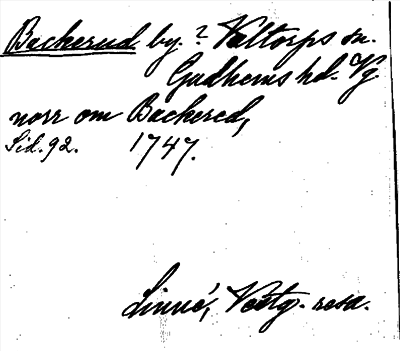 Backerud by. ? Valtorps sn.
Gudhems hd. Vg
norr om Backered,
Sid. 92. 1747.
Linné, Västg. resa.